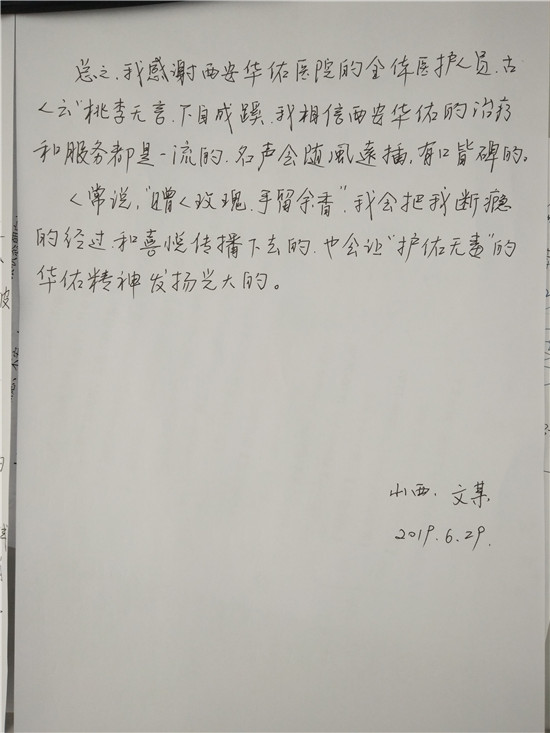 总之,我感谢西安华佑医院的全体医护人员,古
人云"桃李无言,下自成蹊,我相信西安华佑的治疗
和服务都是一流的,名声会随風遠播,有口皆碑的。
人常说,"赠人玫瑰,手留余香",我会把我断瘾
的经过,和喜悦传播下去的,也会让"护佑无毒"的
华佑精神发扬光大的。
山西,文某
2019.6.29.